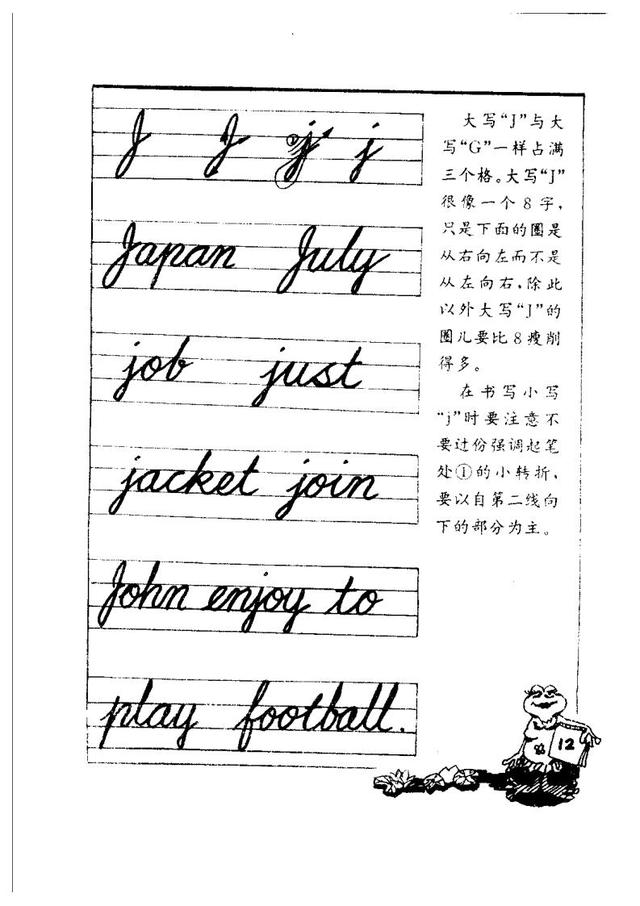 J J j j
Japan July
job just
jacket join
John enjoy to
play football.
大写“J”与大
写“G”一样占满
三个格。大写“J”
很像一个8字,
只是下面的圈是
从右向左而不是
从左向右,除此
以外大写“J”的
圈儿要比8瘦削
得多。
在书写小写
“j”时要注意不
要过份强调起笔
处①的小转折,
要以自第二线向
下的部分为主。
12